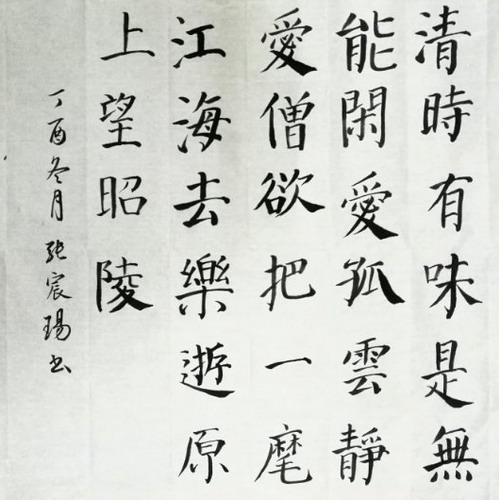 清時有味是無
能閑愛孤雲靜
愛僧欲把一麾
江海去樂逝原
上望昭陵
丁酉冬月張宸瑒书